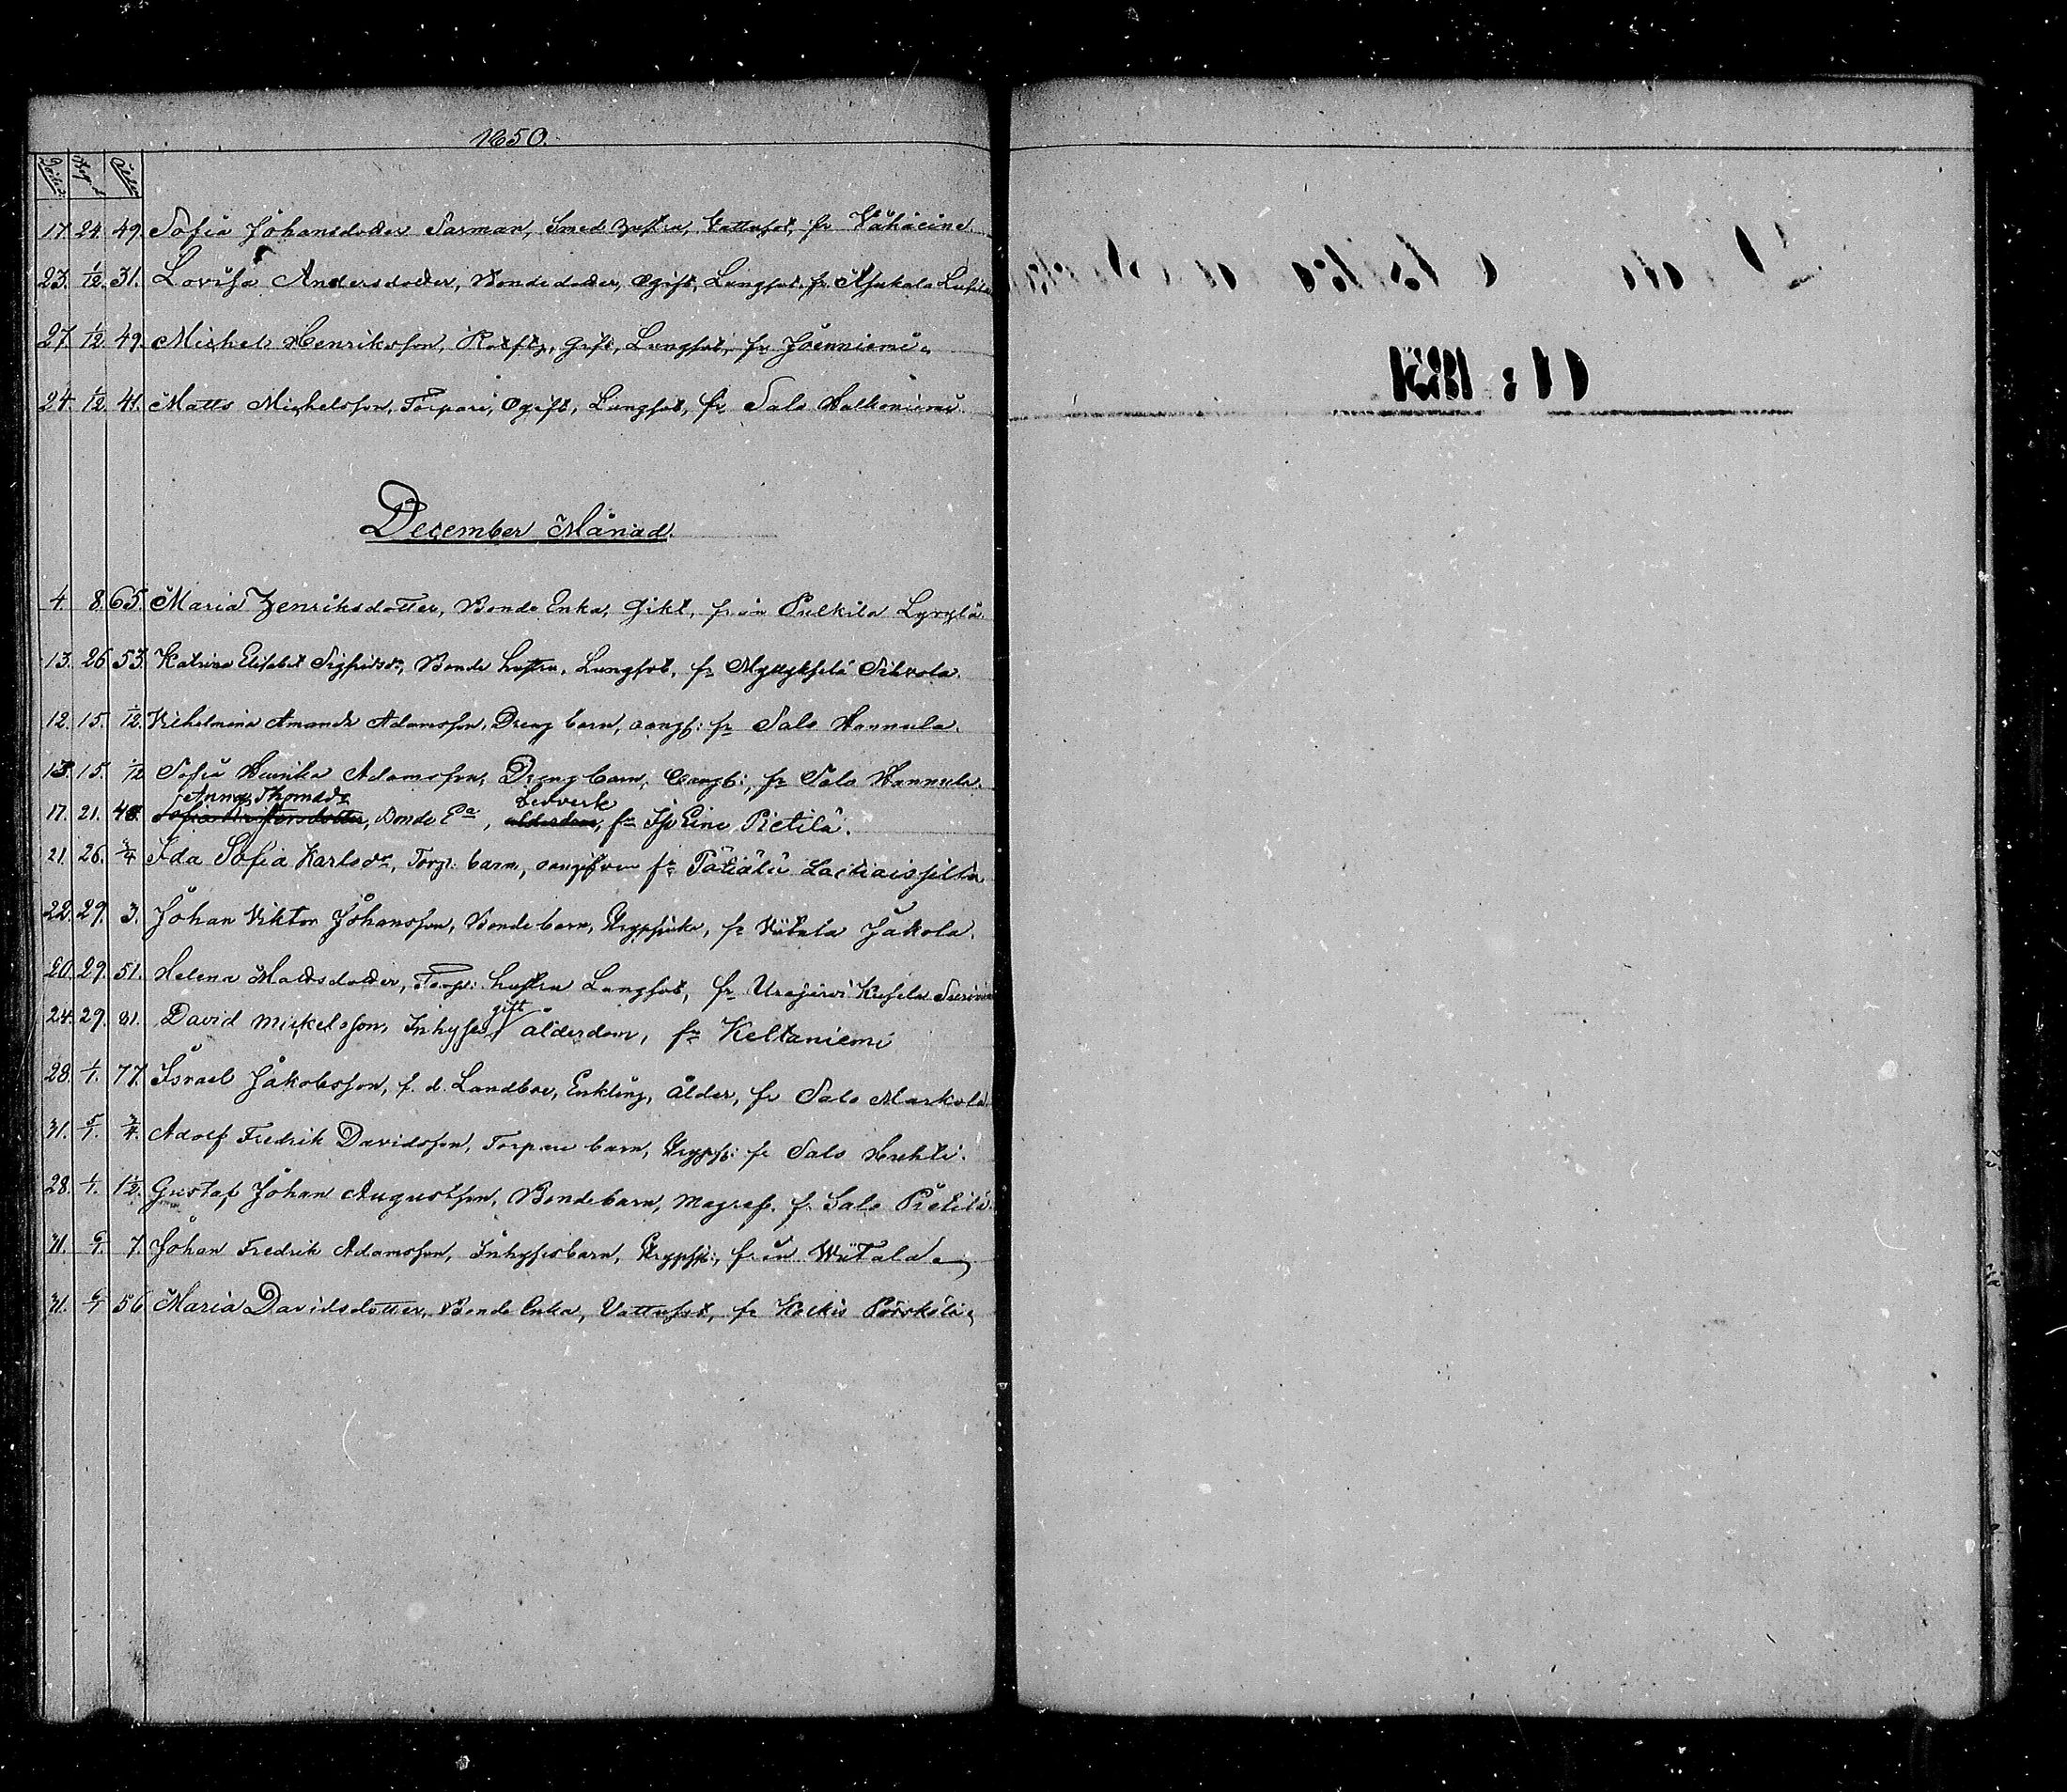 1850.
Döde Begr Ålder
17. 24. 49. Sofia Johansdotter Sarman, Smeds hustru, Vattusot, fr Vähäeino
23. 1/12. 31. Lovisa Andersdotter, Bondedotter, Ogift, Lungsot, fr
27. 1/12. 49. Michel Henriksson, Gift, Lungsot, fr Joenniemi
24. 1/12. 41. Matts Michelsson, Torpare, Ogift, Lungsot, fr Salo Halkoniemi
December Månad.
4. 8. 65. Maria Henriksdotter, Bonde Enka, Gikt, från Pulkila Lyrylä
13. 26. 53. Katrina Elisabet Sigfridsdr, Bonde hustru, Lungsot, fr Sihvola.
12. 15. 1/12. Vilhelmina Amanda Adamsson, Dreng barn, oangf: fr Salo Hannula.
13. 15. 1/12 Sofia Henrika Adamsson, Dreng barn, Oangf:, fr Salo Hannula.
Anna Thomasdr Levverk
17. 21. Bonde Ea, ålderdom, fr Eino Pietilä.
21. 26. 3/4 Ida Sofia Karlsdr, Torp: barn, oangifven fr Pätiälä
22. 29. 3. Johan Viktor Johansson, Bonde barn, Strypsjuka, fr Viitala Jakola.
20. 29. 51. Helena Mattsdotter, Torp: hustru Lungsot, fr Urajärvi
gift
24. 29. 81. David Mickelsson, Inhyses ålderdom, fr Keltaniemi
28. 1/1. 77. Israel Jakobsson, f. d. Landboe, Enkling, ålder, fr Salo Markola
31. 5/1. 3/4. Adolf Fredrik Davidsson, Torpare barn, Strypsj: fr Salo Huhti.
28. 1/1. 1 1/2. Gustaf Johan Augustsson, Bondebarn, Magref. fr Salo Pietilä
31. 6/1. 7. Johan Fredrik Adamsson, Inhysesbarn, Strypsj:, från Wiitala
31. 6/1 56 Maria Davidsdotter, Bonde Enka, Vattusot, fr